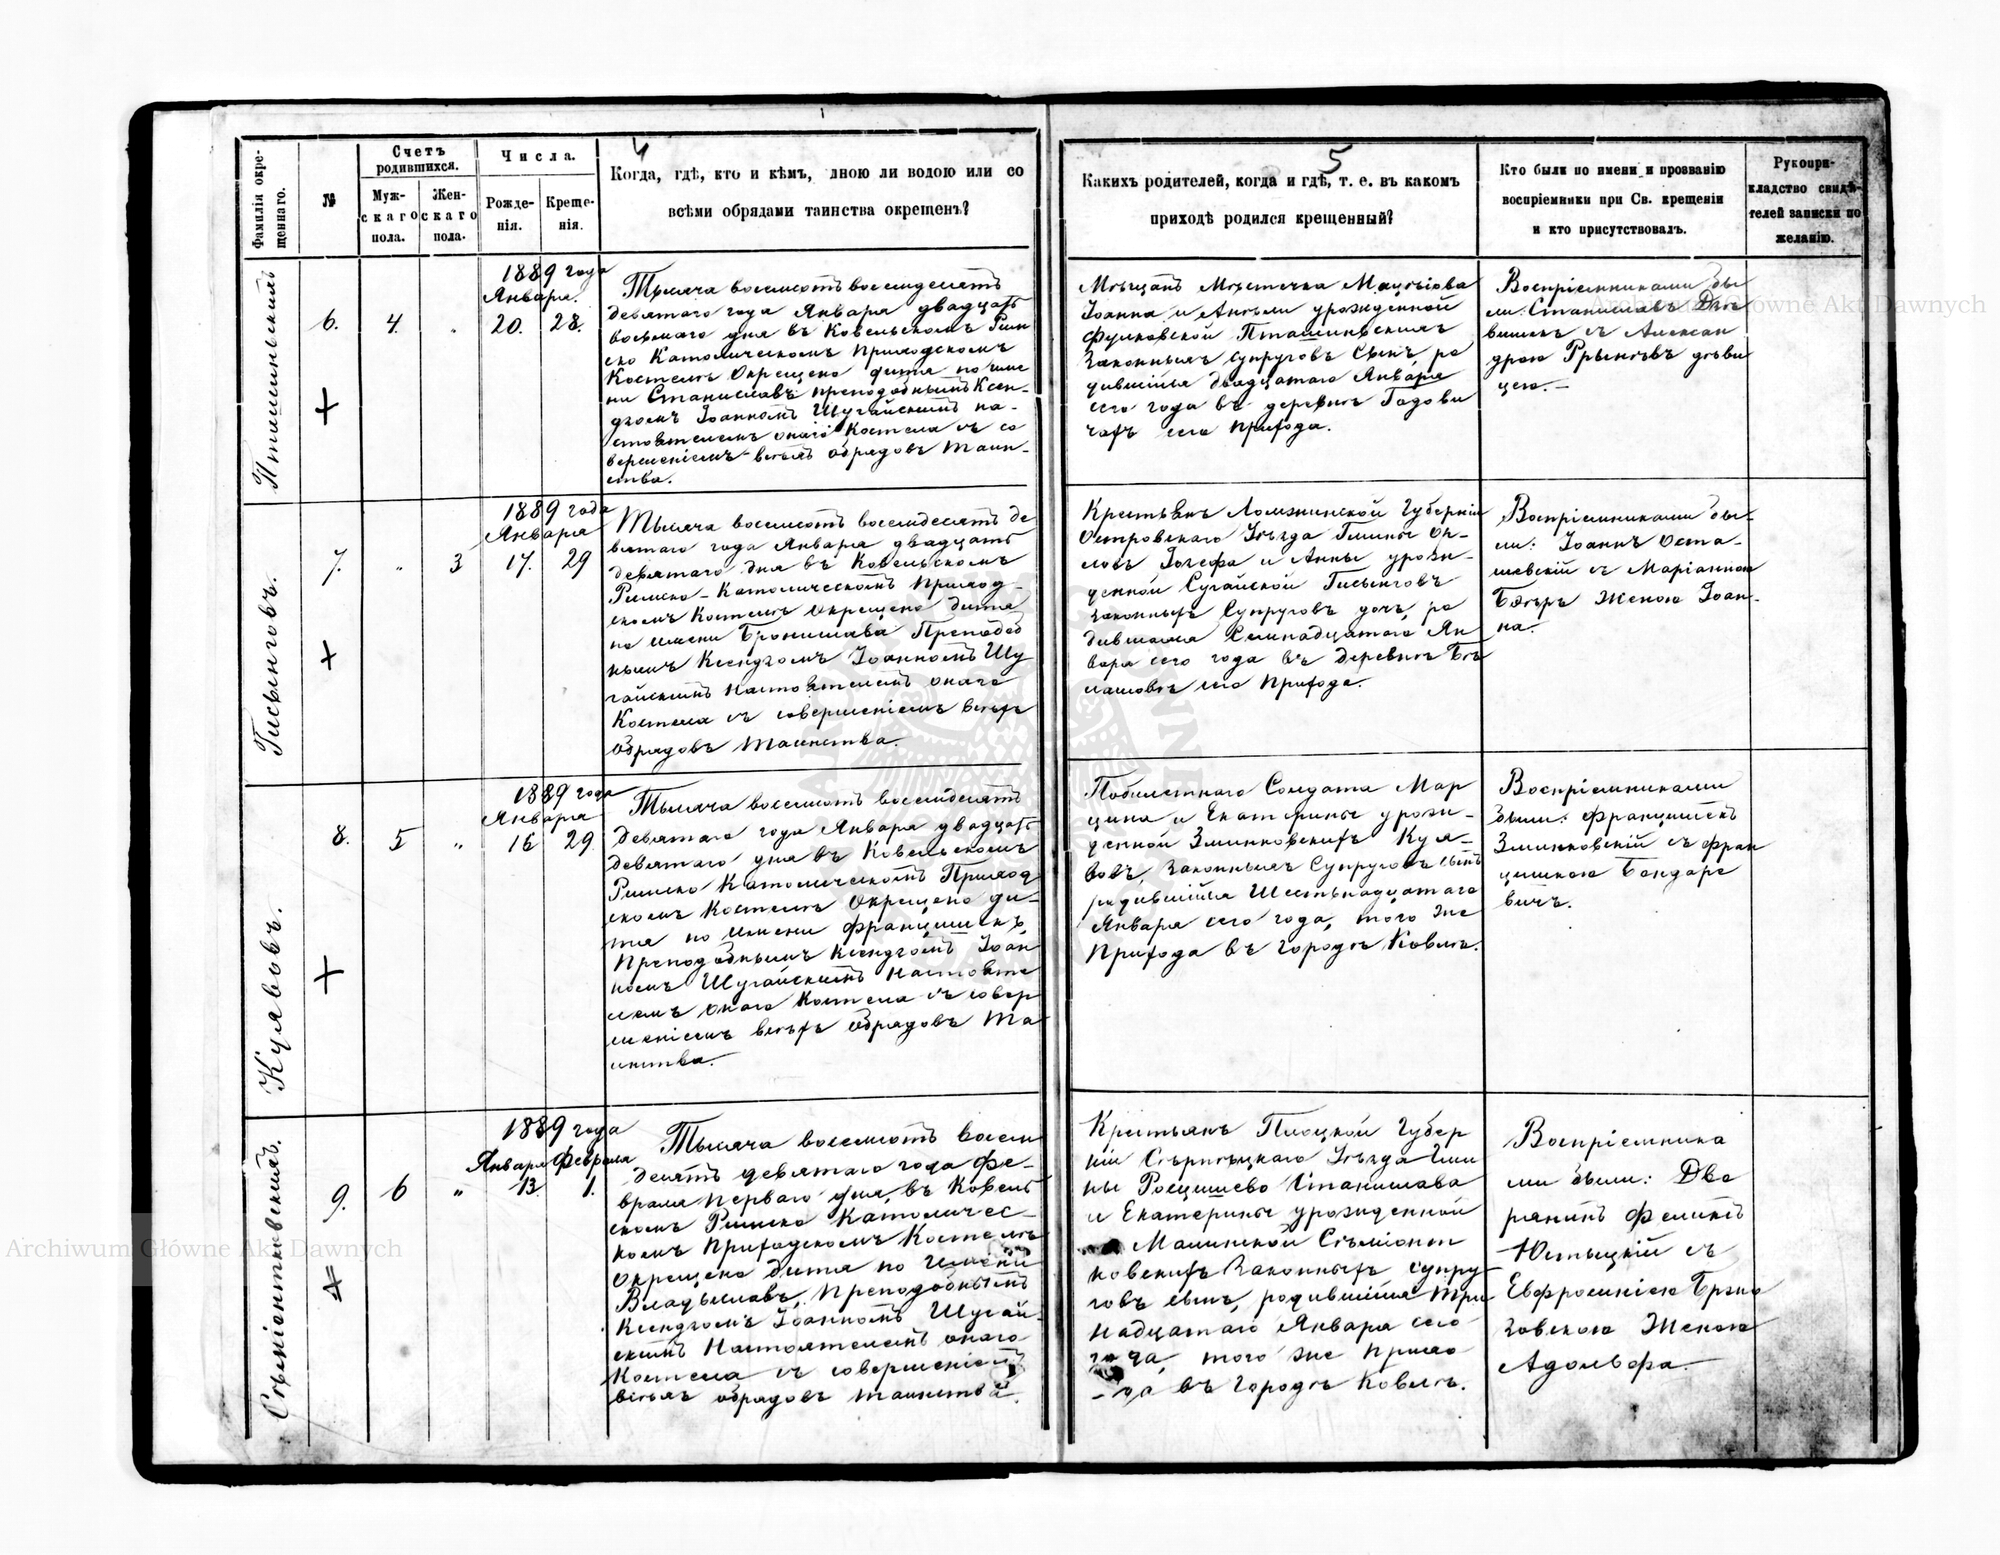 4
5
Фамилія окре-
щеннаго.
№
Счетъ
родившихся.
Муж-
скаго
пола.
Жен-
скаго
пола.
Числа.
Рожде-
нія.
Креще-
нія.
Когда, гдѣ, кто и кѣмъ, дною ли водою или со
всѣми обрядами таинства окрещенъ?
Какихъ родителей, когда и гдѣ, т. е. въ какомъ
приходѣ родился крещенный?
Кто были по имени и прозванію
воспріемники при Св. крещеніи
и кто присутствовалъ.
Рукопри-
кладство свидѣ-
телей записки по
желанію.
Пташиньскій
6.
4.
"
1889 года
Января.
20.
28.
Тысяча восемьсотъ восемьдесятъ
девятаго года Января двадцать
восьмаго дня въ Ковельскомъ Рим
ско Католическомъ Приходскомъ
Костелѣ Окрещено дитя по име
ни Станиславъ преподобнымъ Ксен-
дзомъ Іоанномъ Шугайскимъ на-
стоятелемъ онаго Костела съ со
вершеніемъ всѣхъ обрядовъ Таин-
ства.
Мѣщанъ Мѣстечка Мацѣіова
Іоанна и Анѣли урожденной
Фулковской Пташиньскихъ
Законныхъ супруговъ Сынъ, ро
дившійся двадцатаго Января
сего года въ деревнѣ Годови
чахъ сего Прихода.
Воспріемниками бы-
ли: Станиславъ
съ Алексан
дрою Грынѣвъ дѣви
цею.-
Гисынговъ.
7.
"
3
1889 года
Января
17.
29
Тысяча восемьсотъ восемьдесятъ де
вятаго года Января двадцать
девятаго дня въ Ковельскомъ
Римско-Католическомъ Приход-
скомъ Костелѣ Окрещено дитя
по имени Бронислава Преподоб
нымъ Ксендзомъ Іоанномъ Шу
гайскимъ Настоятелемъ онаго
Костела съ совершеніемъ всѣхъ
обрядовъ Таинства.
Крестьянъ Ломжинской Губерніи
Островскаго Уѣзда Гмины Ор-
ловъ Іозефа и Анны урож-
денной Сугайской Гисынговъ
законныхъ Супруговъ дочь, ро
дившаяся Семнадцатаго Ян
варя сего года въ деревнѣ Бѣ
лашовѣ сего Прихода.
Воспріемниками бы-
ли: Іоаннъ Оста-
шевскій съ Маріанною
Женою Іоан-
на.
Кулявовъ.
8.
5
"
1889 года
Января
16
29.
Тысяча восемьсотъ восемьдесятъ
девятаго года Января двадцать
девятаго дня въ Ковельскомъ
Римско Католическомъ Приход
скомъ Костелѣ Окрещено ди-
тя по имени Францишекъ
Преподобнымъ Ксендзомъ Іоан
номъ Шугайскимъ Настояте
лемъ онаго Костела съ совер
шеніемъ всѣхъ обрядовъ Та
инства.
Побилетнаго Солдата Мар
цина и Екатерины урож-
денной Зминковскихъ Куля-
вовъ, законныхъ Супруговъ сынъ
родившійся Шестьнадцатаго
Января сего года, того же
Прихода въ городѣ Ковелѣ.
Воспріемниками
были: Францишекъ
Зминковскій съ Фран
цишкою Бондаре
вичъ.
9.
6
"
1889 года
Января
Февраля
13.
1.
Тысяча восемьсотъ восем
десятъ девятаго года Фе-
враля перваго дня, въ Ковель
скомъ Римско Католичес-
комъ Приходскомъ Костелѣ
Окрещено дитя по имени
Владыславъ, Преподобнымъ
Ксендзомъ Іоанномъ Шугай-
скимъ Настоятелемъ онаго
Костела съ совершеніемъ
всѣхъ обрядовъ таинства.
Крестьянъ Плоцкой Губер
ніи Сѣрпѣцкаго Уѣзда Гми
ны Росцишево Станислава
и Екатерины урожденной
Малинской
Законныхъ супру
говъ сынъ, родившійся Три
надцатаго Января сего
года, того же прихо
да въ городѣ Ковелѣ.
Воспріемника
ми были: Дво
рянинъ Феликсъ
съ
Евфросиніею Бржо
зовскою Женою
Адольфа.-
Archiwum Główne Akt Dawnych
Archiwum Główne Akt Dawnych